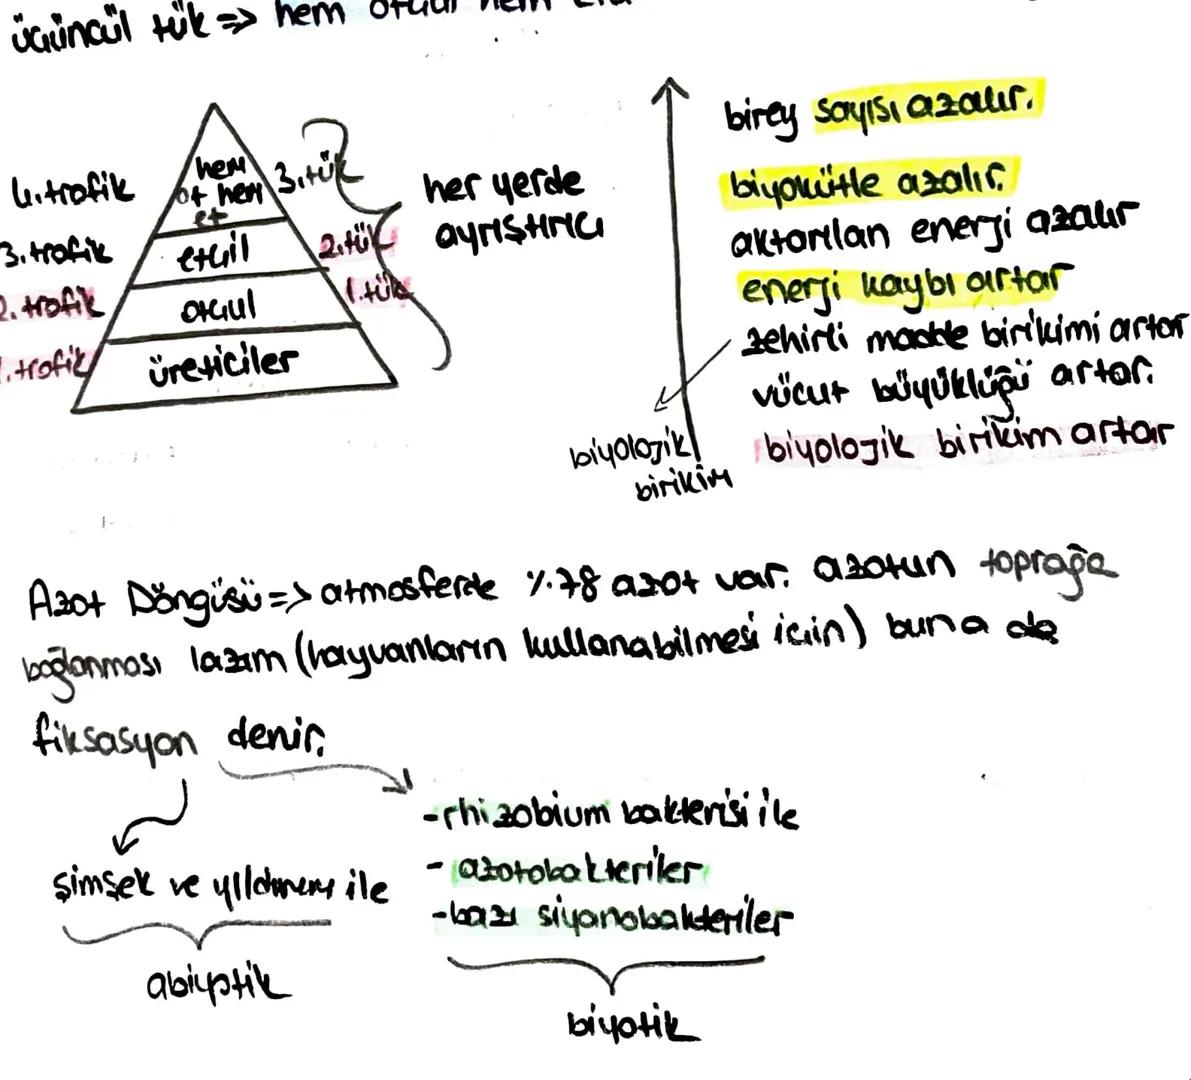 üçüncül tük => hem otçul hem
4. trofik
hem
ot hem
et
3. tük
3. trofik
etçil
2. tük
2. trofik
otçul
1. tük
1. trofik
üreticiler
her yerde
ayrıştırıcı
birey sayısı azalır.
biyokütle azalır.
aktarılan enerji azalır
enerji kaybı artar
zehirli madde birikimi artar
vücut büyüklüğü artar.
biyolojik birikim artar
biyolojik
birikim
Azot Döngüsü => atmosferde %78 azot var. azotun toprağa
bağlanması lazım (hayvanların kullanabilmesi için) buna da
fiksasyon denir.
şimşek ve yıldırım ile
abiyotik
-rhizobium bakterisi ile
- azotobakteriler
-bazı siyanobakteriler
biyotik